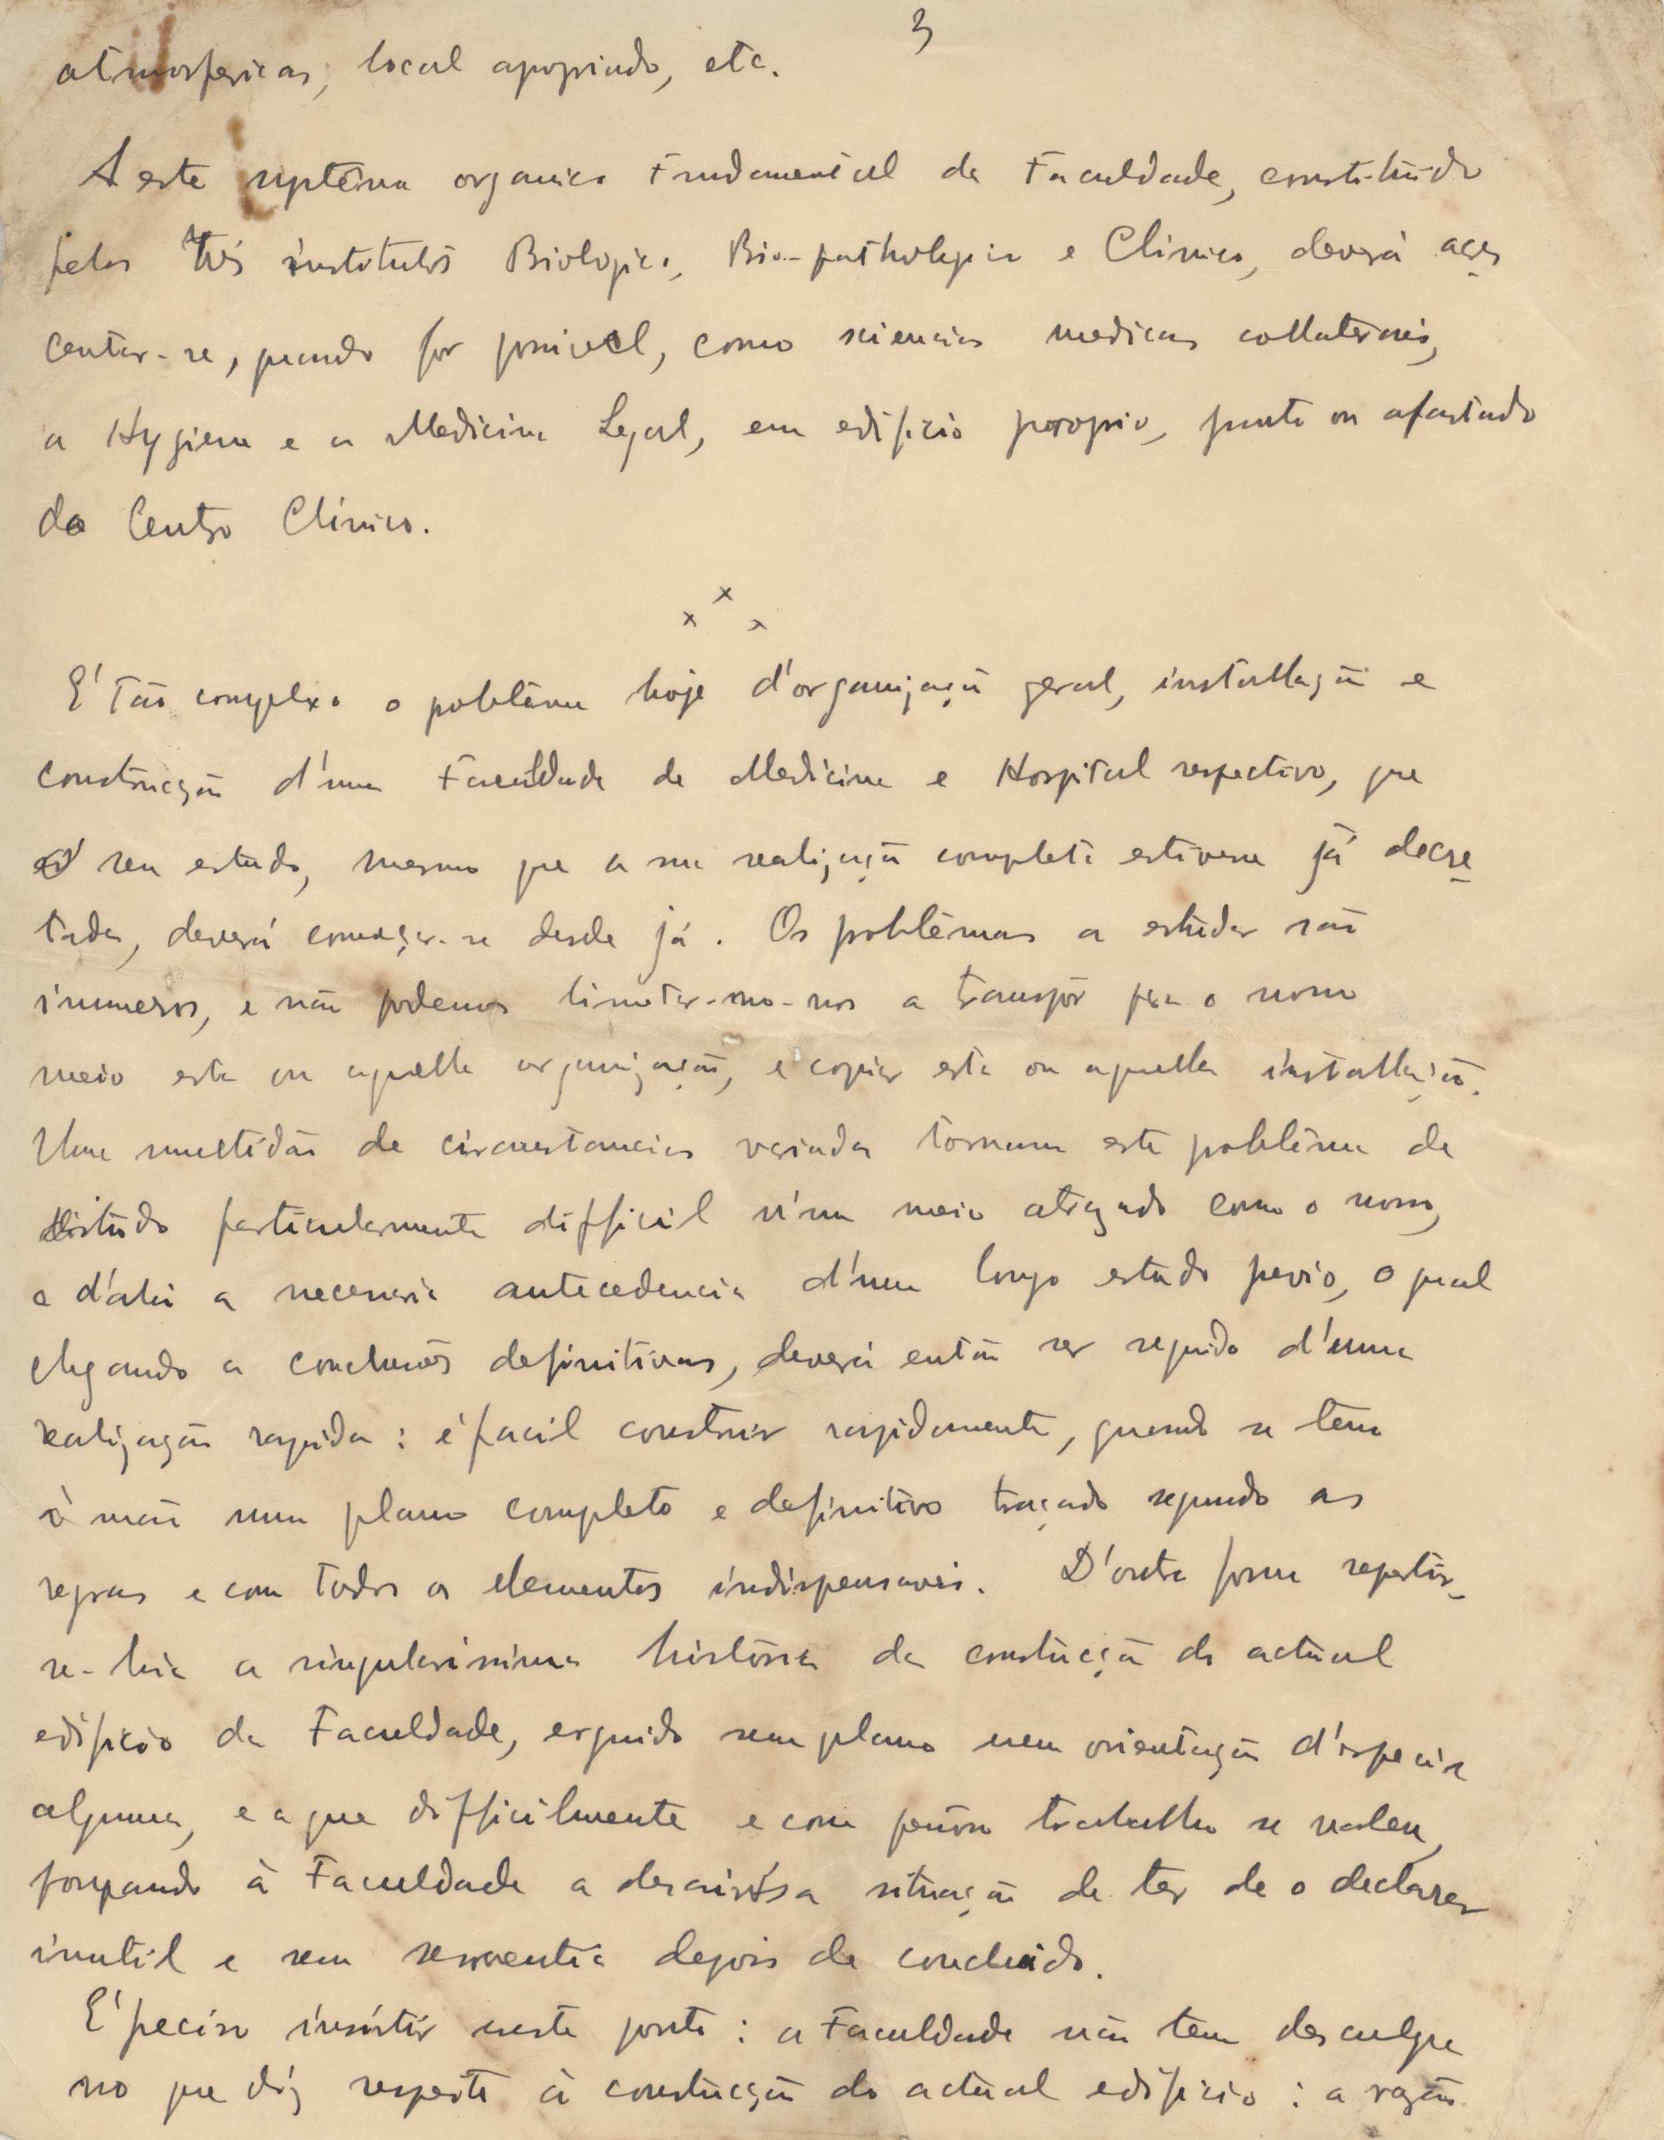 3
atmosfericas, local apropriado, etc.
A este systêma organico fundamental da Faculdade, constituido
pelos tres institutos Biologico, Bio-pathologico e Clinico, deverá acres
centar-se, quando for possivel, como sciencias medicas collateraes,
a Hygiene e a Medicina Legal, em edificio proprio, junto ou afastado
do Centro Clínico.
x x x
E' tão complexo o problêma hoje d'organização geral, installação e
construcção d'uma Faculdade de Medicina e Hospital respectivo, que
o seu estudo, mesmo que a sua realização completa estivesse já decre
tada, deverá começar-se desde já. Os problêmas a estudar são
inumeros, e não podemos limitar-mo-nos a transpôr para o nosso
meio esta ou aquella organização, e copiar esta ou aquella installação.
Uma multidão de circunstancias variadas tornam este problêma de
estudo particularmente difficil n'um meio atrazado como o nosso,
e d'ahi a necessaria antecedencia d'um longo estudo previo, o qual
chegando a conclusões definitivas, deverá então ser seguido d'uma
realização rapida: é facil construir rapidamente, quando se tem
à mão um plano completo e definitivo traçado segundo as
regras e com todos os elementos indispensaveis. D'outra forma repetir-
se-hia a singularissima história da construcção do actual
edificio da Faculdade, erguido sem plano nem orientação d'especie
alguma, e a que difficilmente e com penoso trabalho se valeu,
forçando à Faculdade a desairósa situação de ter de o declarar
inutil e sem serventia depois de concluido.
E' preciso insistir neste ponto: a Faculdade não tem desculpa
no que diz respeito à construcção do actual edificio: a razão